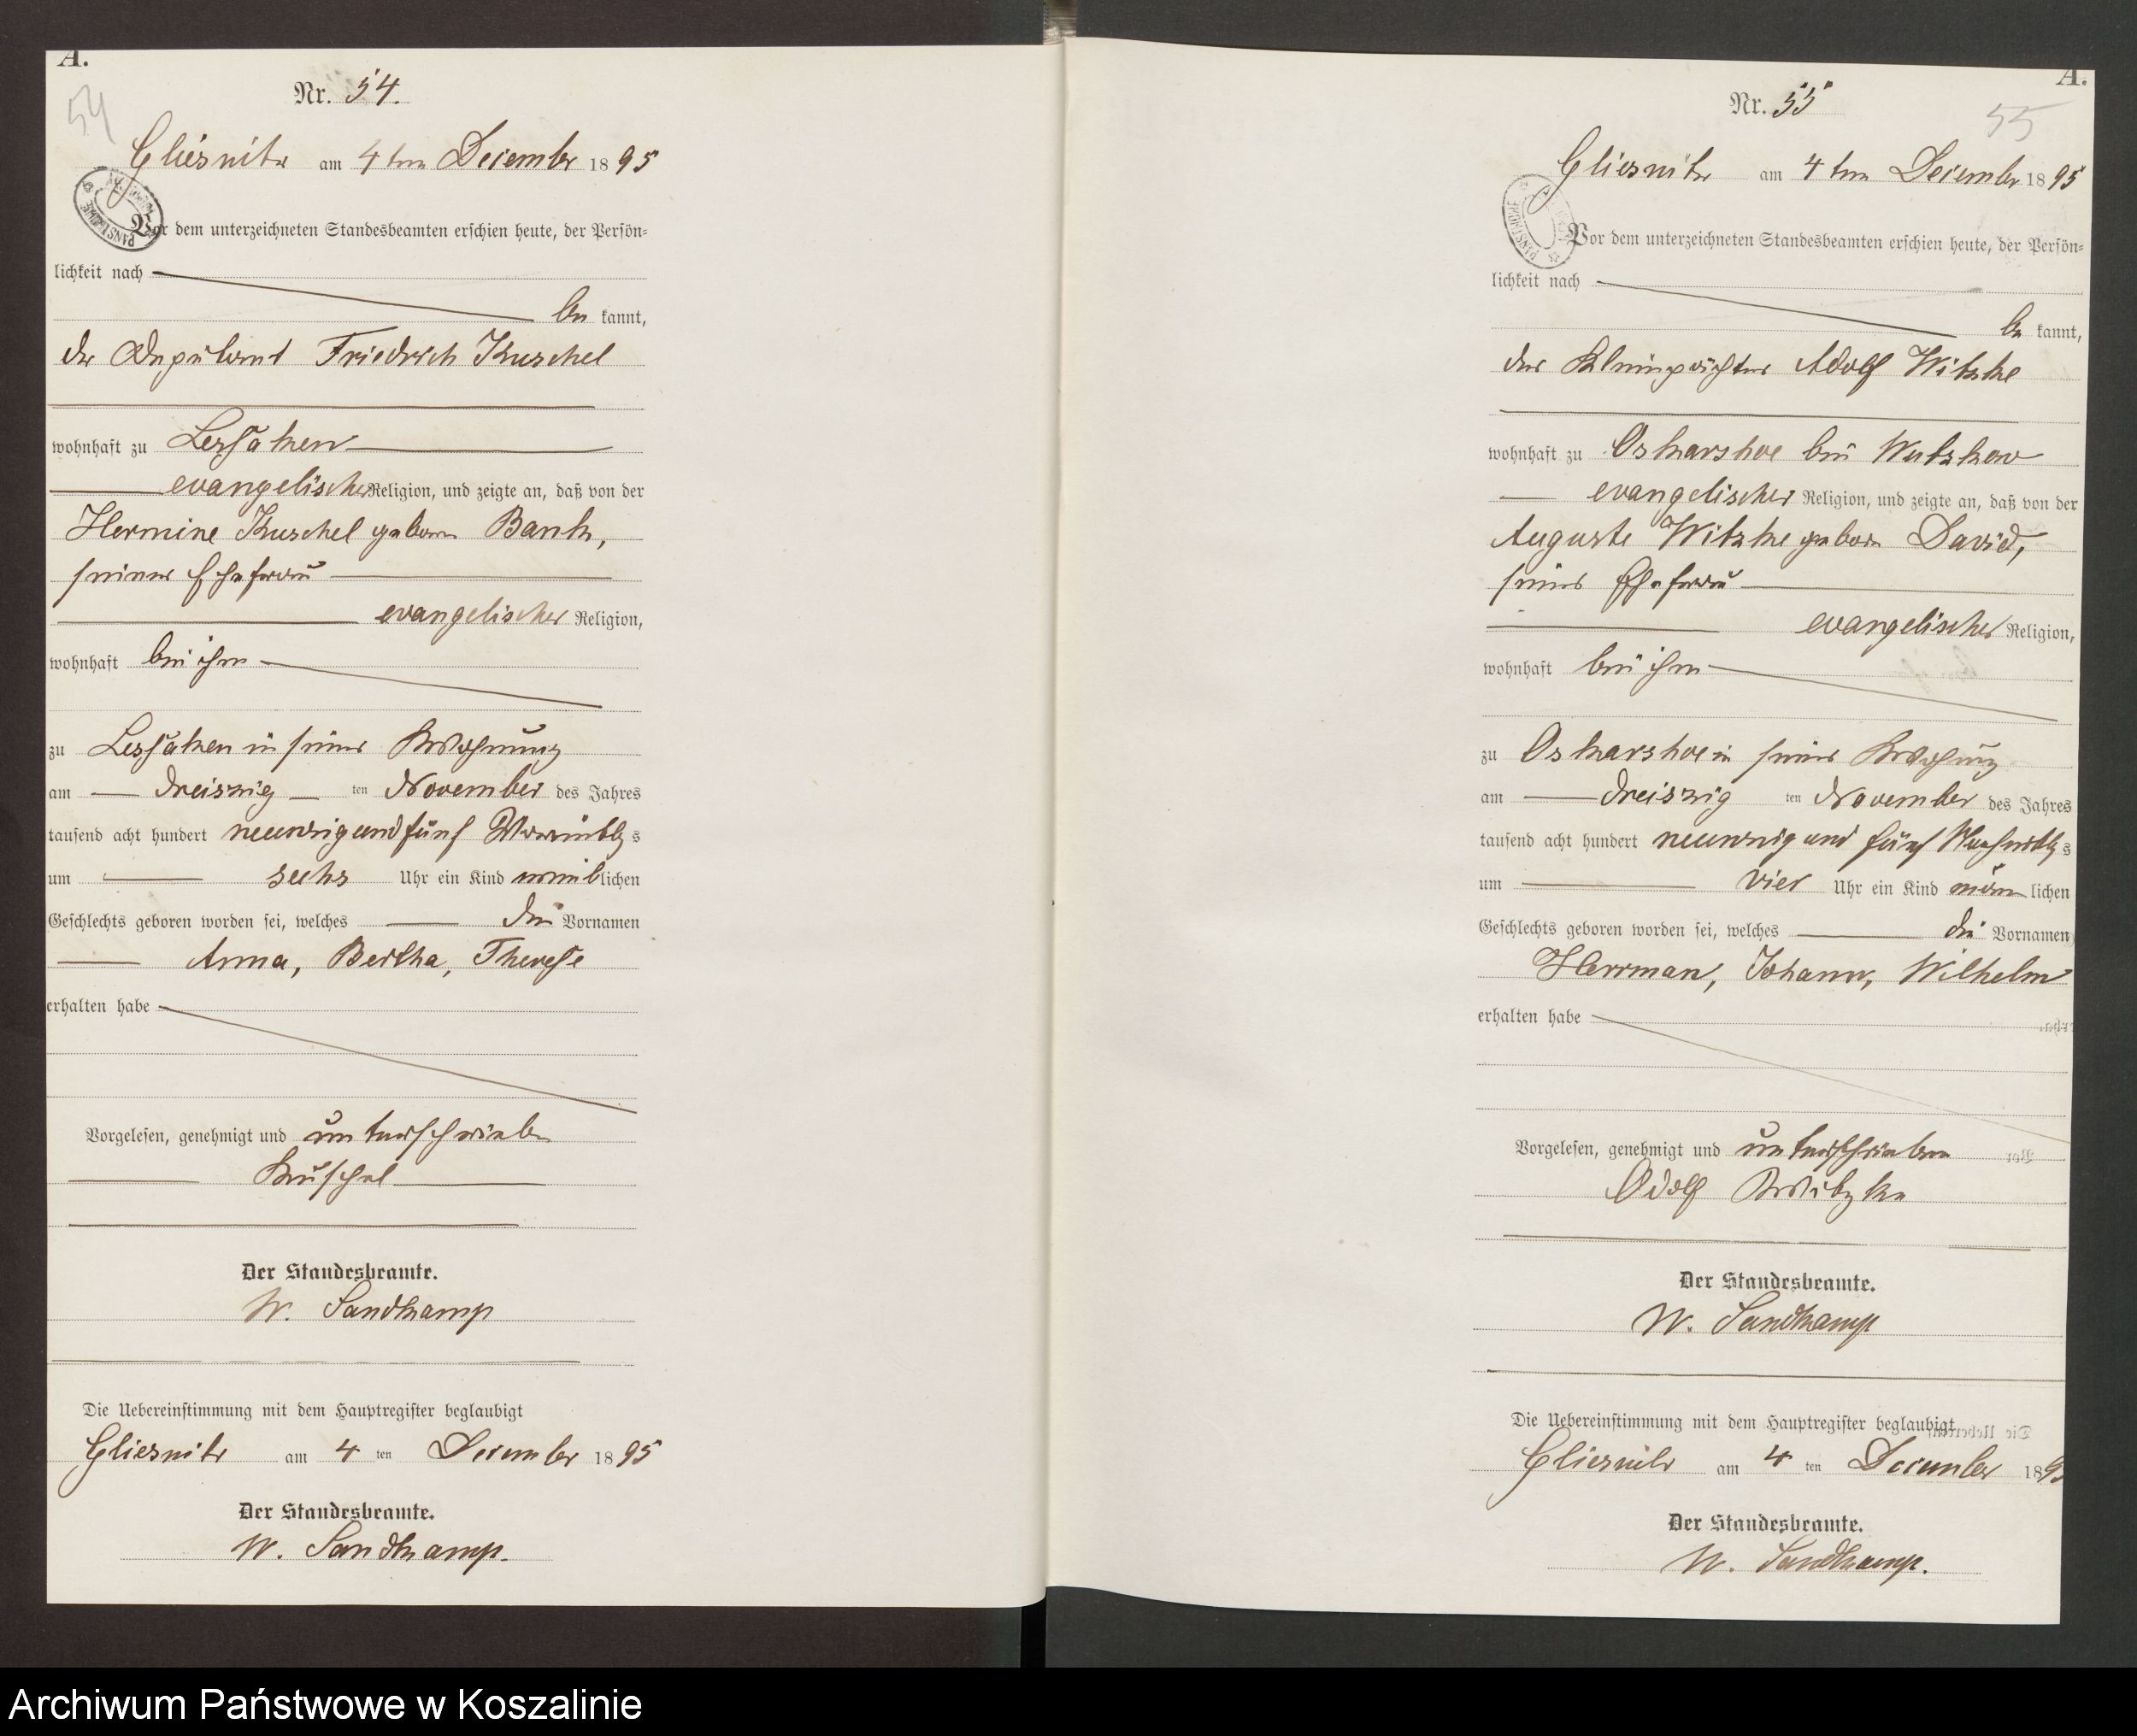 A.
54
Nr. 54.
Gliesnitz am 4 ten December 1895
Vor dem unterzeichneten Standesbeamten erschien heute, der Persön-
lichkeit nach
be kannt,
der Deputant Friedrich Kuschel
wohnhaft zu Lessaken
evangelischer Religion, und zeigte an, daß von der
Hermine Kuschel geboren Bank,
seiner Ehefrau
evangelischer Religion,
wohnhaft bei ihm
zu Lessaken in seiner Wohnung
am dreiszig ten November des Jahres
tausend acht hundert neunzig und fünf Vormittags
um sechs Uhr ein Kind weiblichen
Geschlechts geboren worden sei, welches die Vornamen
Anna, Bertha, Therese
erhalten habe
Vorgelesen, genehmigt und unterschrieben
Kuschel
Der Standesbeamte.
W. Sandkamp
Die Uebereinstimmung mit dem Hauptregister beglaubigt
Gliesnitz am 4 ten December 1895
Der Standesbeamte.
W. Sandkamp.
A.
55
Nr. 55
Gliesnitz am 4 ten December 1895
Vor dem unterzeichneten Standesbeamten erschien heute, der Persön-
lichkeit nach
be kannt,
der Kleinpächter Adolf Witzke
wohnhaft zu Oskarshoe bei Wutzkow
evangelischer Religion, und zeigte an, daß von der
Auguste Witzke geboren David,
seiner Ehefrau
evangelischer Religion,
wohnhaft bei ihm
zu Oskarshoe in seiner Wohnung
am dreiszig ten November des Jahres
tausend acht hundert neunzig und fünf Nachmittags
um vier Uhr ein Kind männlichen
Geschlechts geboren worden sei, welches die Vornamen
Herrman, Johann, Wilhelm
erhalten habe
Vorgelesen, genehmigt und unterschrieben
Adolf Witzke
Der Standesbeamte.
W. Sandkamp
Die Uebereinstimmung mit dem Hauptregister beglaubigt
Gliesnitz am 4 ten December 1895
Der Standesbeamte.
W. Sandkamp.
Archiwum Państwowe w Koszalinie